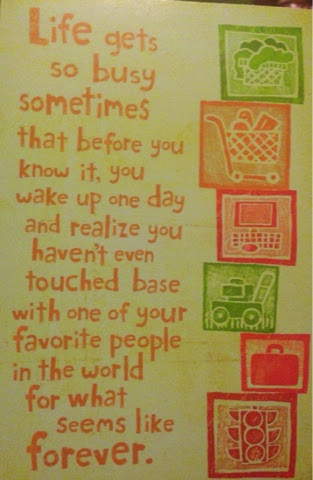 Life gets
so busy
sometimes
that before you
know it, you
wake up one day
and realize you
haven't even
touched base
with one of your
favorite people
in the world
for what
seems like
forever.